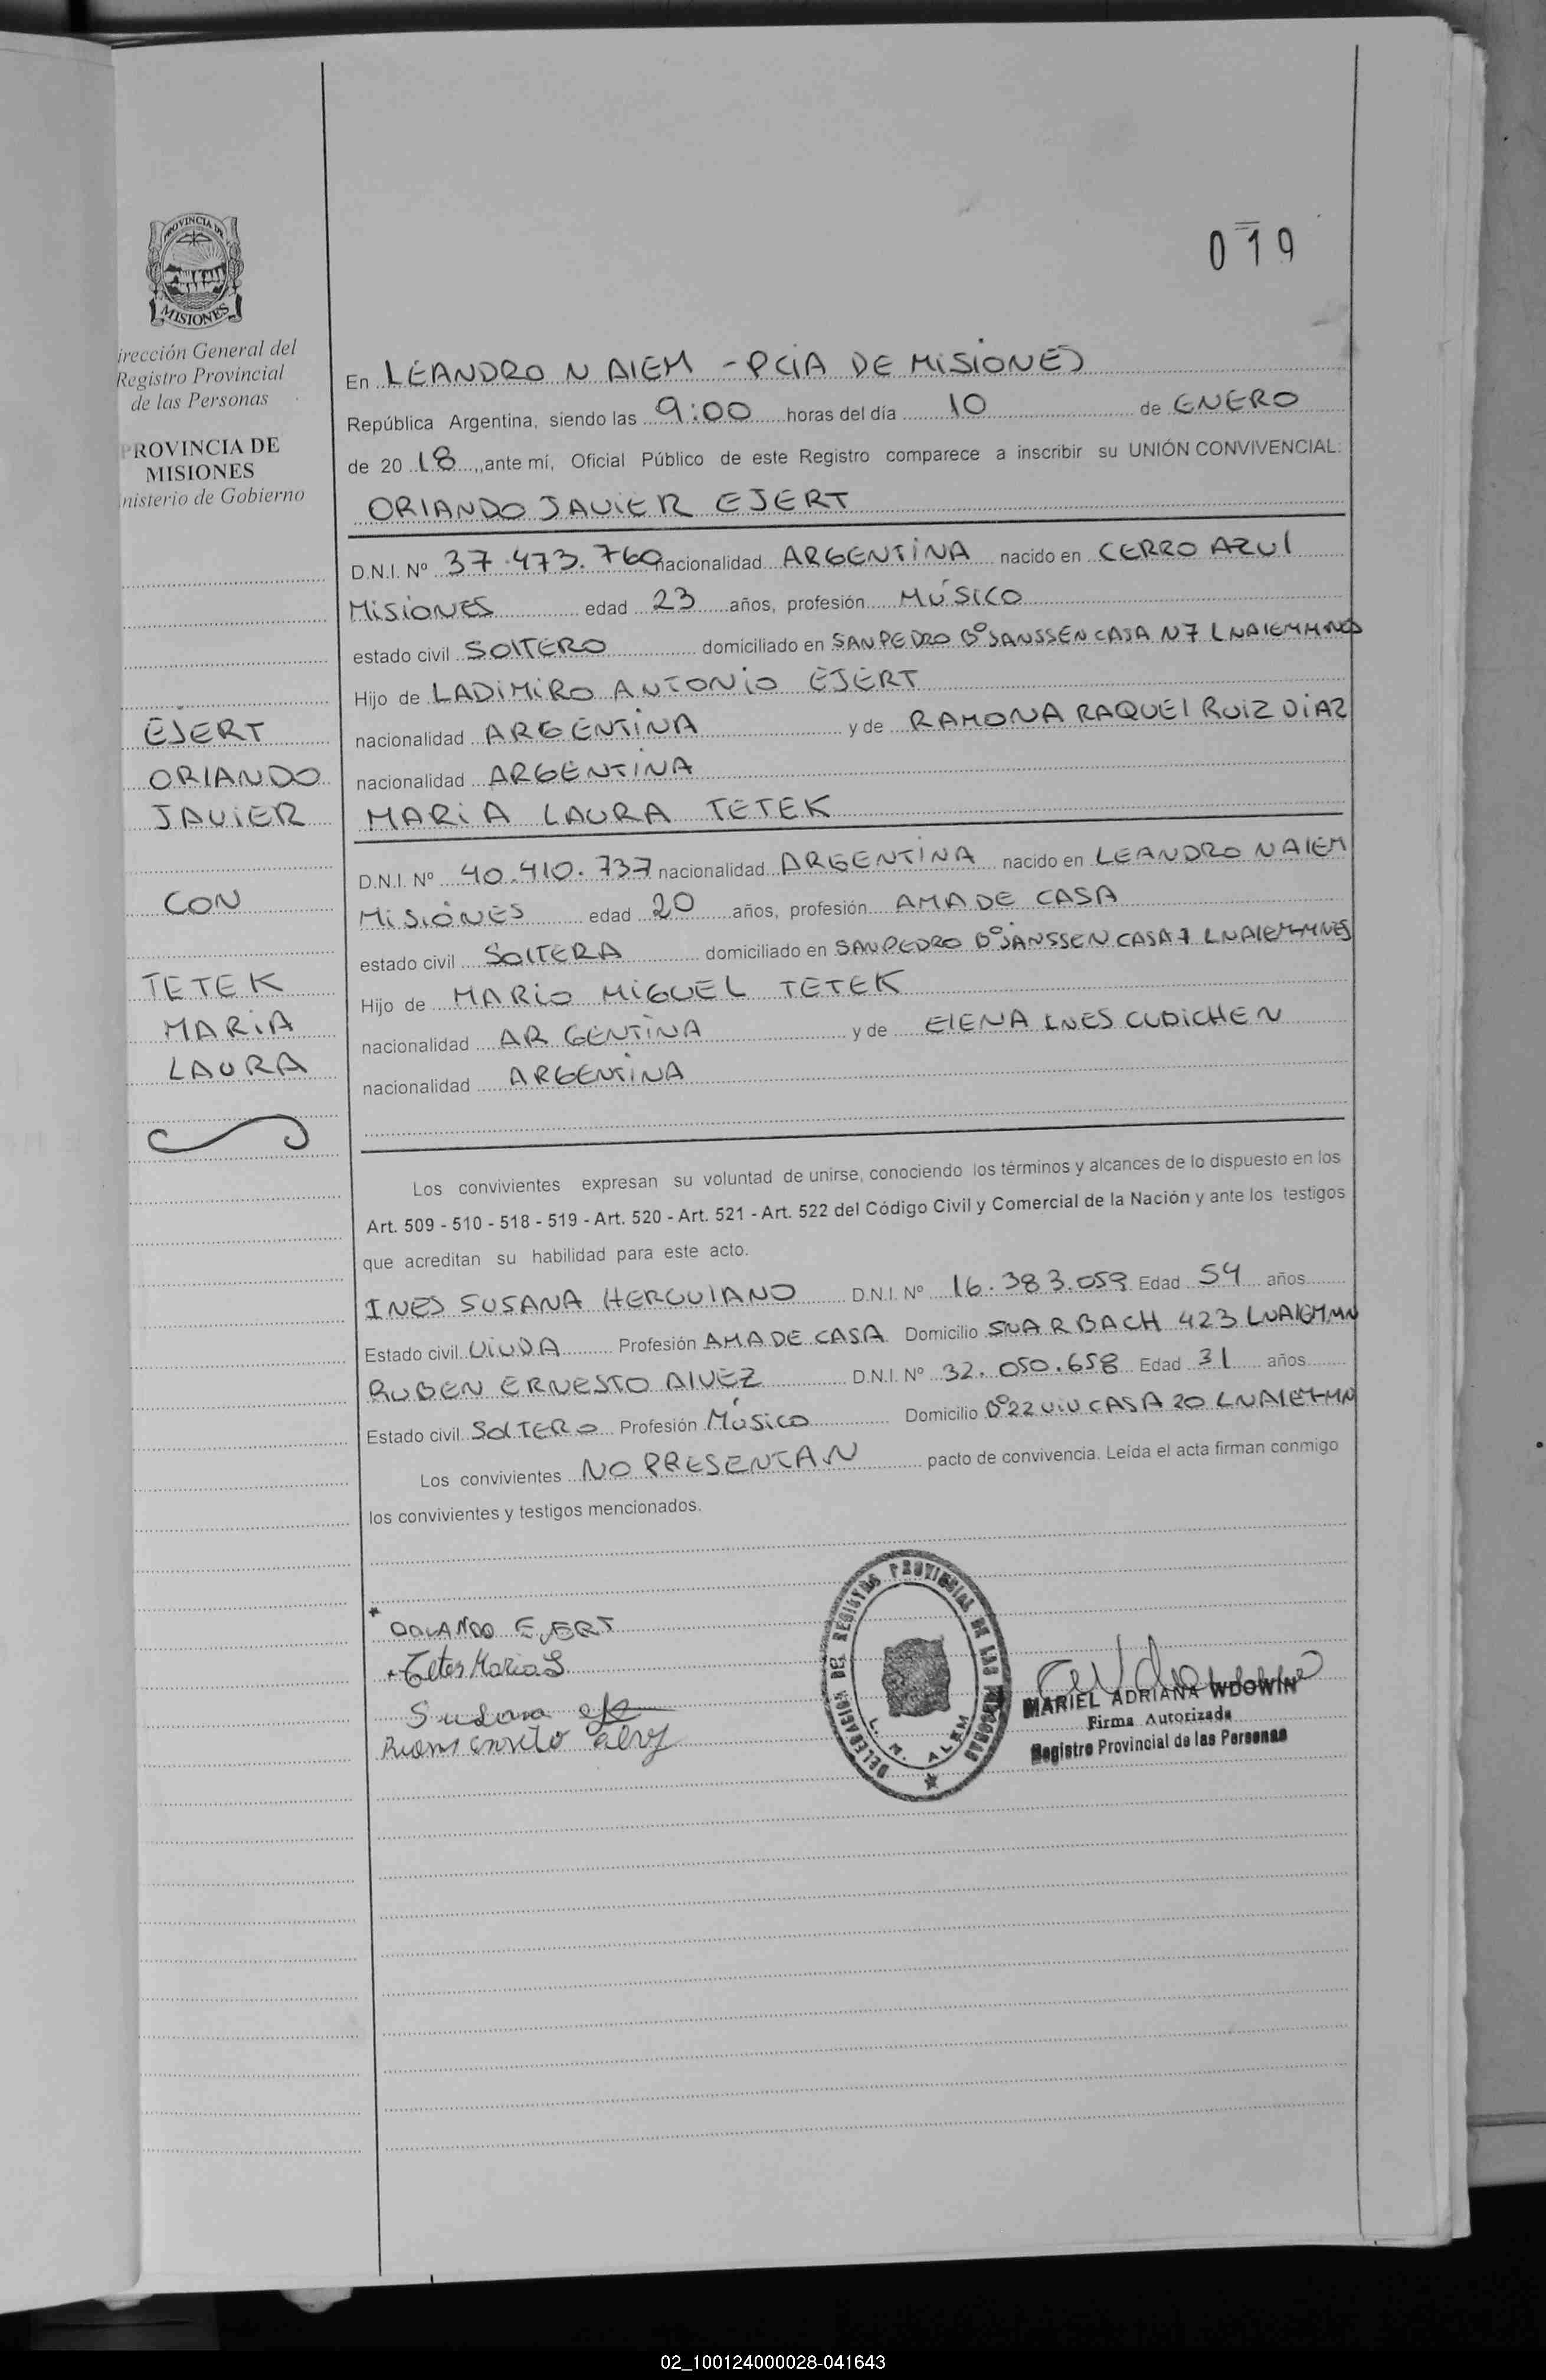 019
PROVINCIA DE
MISIONES
irección General del
Registro Provincial
de las Personas
PROVINCIA DE
MISIONES
nisterio de Gobierno
En LEANDRO N ALEM - PCIA DE MISIONES
República Argentina, siendo las 9:00 horas del día 10 de ENERO
de 2018, ante mí, Oficial Público de este Registro comparece a inscribir su UNIÓN CONVIVENCIAL:
ORLANDO JAVIER EJERT
D.N.I. Nº 37.473.760 nacionalidad ARGENTINA nacido en CERRO AZUL
MISIONES edad 23 años, profesión MÚSICO
estado civil SOLTERO domiciliado en SAN PEDRO Bº JANSSEN CASA N7 LNALEM MNES
Hijo de LADIMIRO ANTONIO EJERT
nacionalidad ARGENTINA y de RAMONA RAQUEL RUIZ DIAZ
nacionalidad ARGENTINA
MARIA LAURA TETEK
D.N.I. Nº 40.410.737 nacionalidad ARGENTINA nacido en LEANDRO N ALEM
MISIONES edad 20 años, profesión AMA DE CASA
estado civil SOLTERA domiciliado en SAN PEDRO Bº JANSSEN CASA 7 LNALEM-MNES
Hijo de MARIO MIGUEL TETEK
nacionalidad ARGENTINA y de ELENA INES CUDICHEN
nacionalidad ARGENTINA
EJERT
ORLANDO
JAVIER
CON
TETEK
MARIA
LAURA
Los convivientes expresan su voluntad de unirse, conociendo los términos y alcances de lo dispuesto en los
Art. 509 - 510 - 518 - 519 - Art. 520 - Art. 521 - Art. 522 del Código Civil y Comercial de la Nación y ante los testigos
que acreditan su habilidad para este acto.
INES SUSANA HERCULANO D.N.I. Nº 16.383.059 Edad 54 años
Estado civil VIUDA Profesión AMA DE CASA Domicilio 423 LNALEM MN
RUBEN ERNESTO ALVEZ D.N.I. Nº 32.050.658 Edad 31 años
Estado civil SOLTERO Profesión Músico Domicilio Bº 22 VIV CASA 20 LNALEM-MN
Los convivientes NO PRESENTAN pacto de convivencia. Leída el acta firman conmigo
los convivientes y testigos mencionados.
ORLANDO EJERT
Tetek Maria L
Susana
DELEGACION DEL REGISTRO PROVINCIAL DE LAS PERSONAS
L. N. ALEM
MARIEL ADRIANA WDOWIN
Firma Autorizada
Registro Provincial de las Personas
02_100124000028-041643